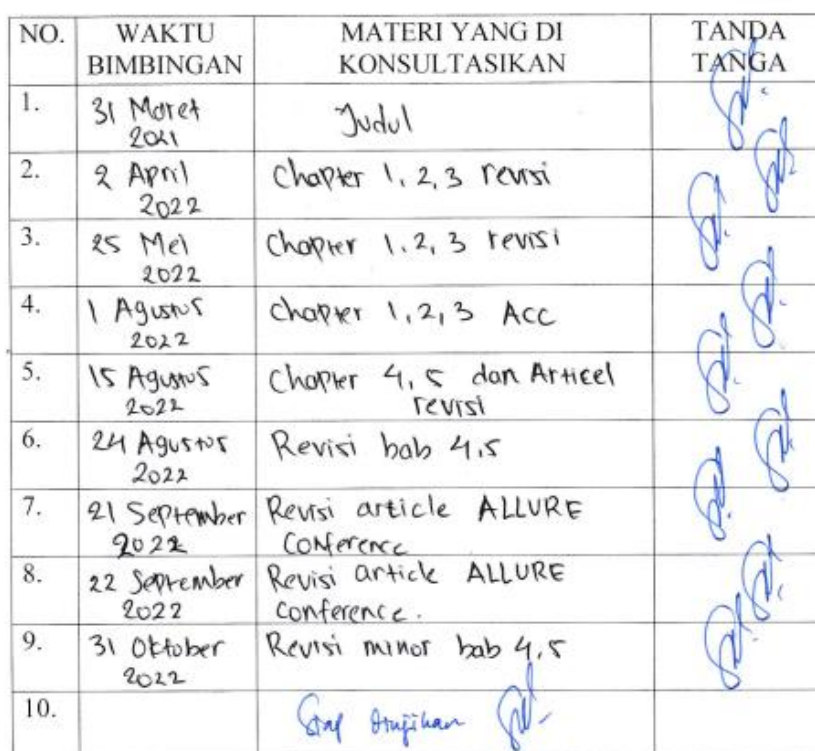 NO.
WAKTU
BIMBINGAN
MATERI YANG DI
KONSULTASIKAN
TANDA
TANGA
1.
31 Maret
2021
Judul
2.
2 April
2022
Chapter 1, 2, 3 revisi
3.
25 Mei
2022
Chapter 1, 2, 3 revisi
4.
1 Agustus
2022
Chapter 1, 2, 3 Acc
5.
15 Agustus
2022
Chapter 4, 5 dan Articel
revisi
6.
24 Agustus
2022
Revisi bab 4,5
7.
21 September
2022
Revisi article ALLURE
Conference
8.
22 September
2022
Revisi article ALLURE
Conference.
9.
31 Oktober
2022
Revisi minor bab 4,5
10.
Siap diujikan